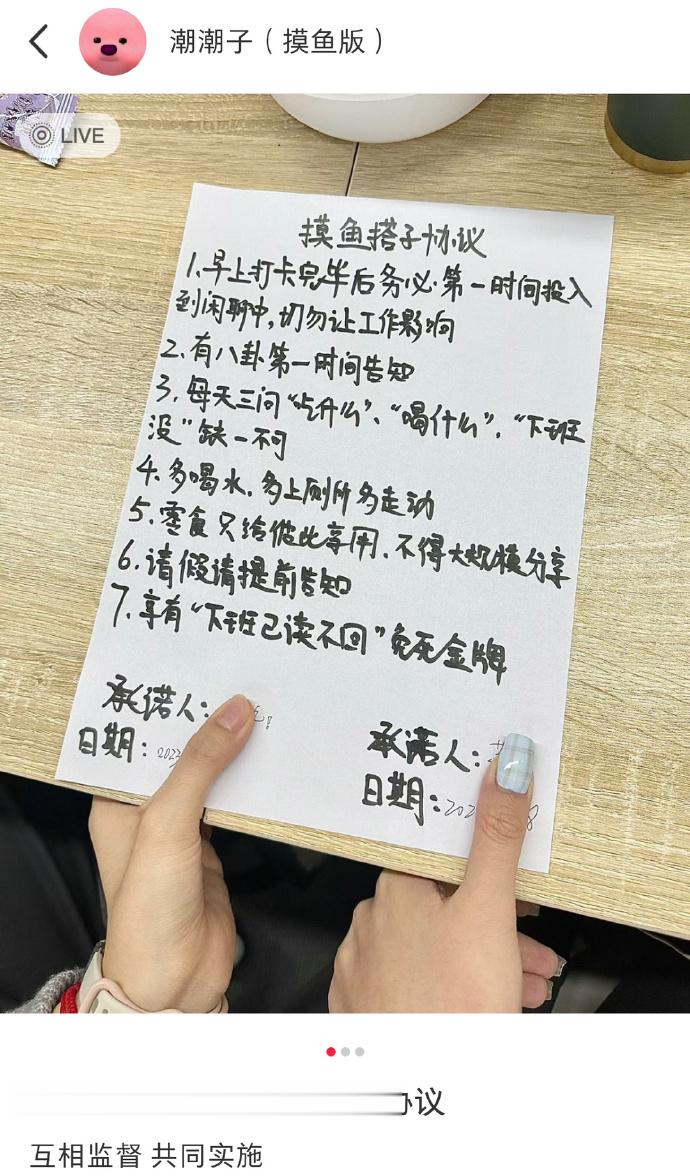 潮潮子（摸鱼版）
LIVE
摸鱼搭子协议
1.早上打卡完毕后务必第一时间投入
到闲聊中,切勿让工作影响
2.有八卦第一时间告知
3.每天三问“吃什么”、“喝什么”、“下班
没”缺一不可
4.多喝水,多上厕所多走动
5.零食只给彼此享用,不得大规模分享
6.请假请提前告知
7.享有“下班已读不回”免死金牌
承诺人:
日期:
承诺人:
日期:
议
互相监督 共同实施